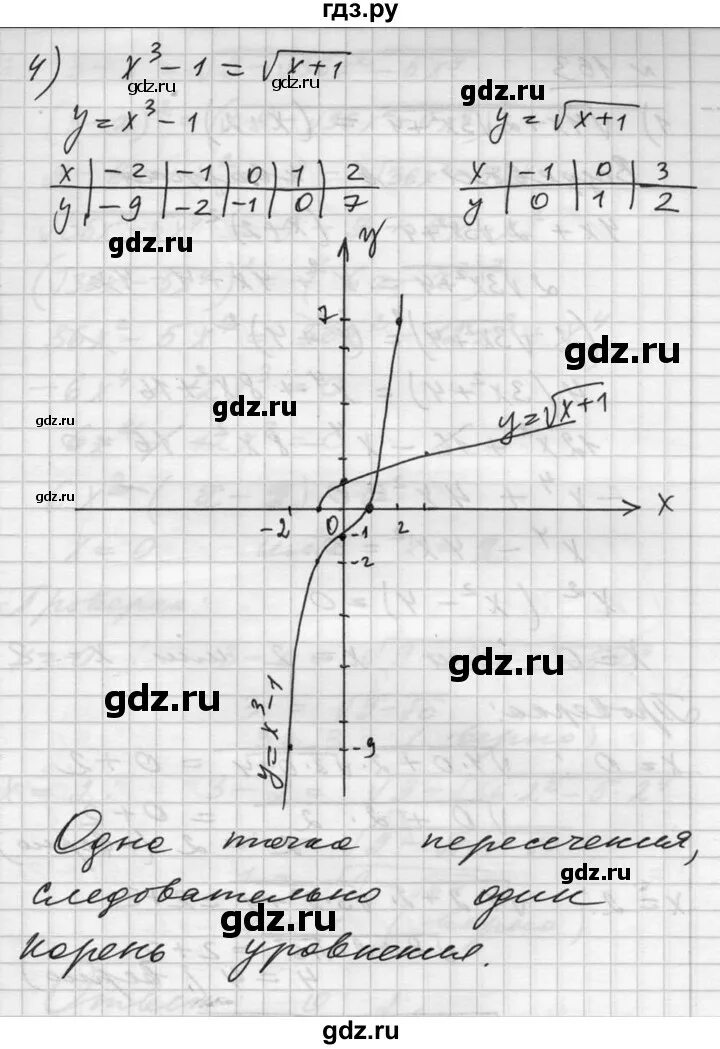 гдз.ру
4) x³ − 1 = √(x+1)
gdz.ru gdz.ru
gdz.ru
y = x³ − 1 y = √(x+1)
x | −2 | −1 | 0 | 1 | 2
y | −9 | −2 | −1 | 0 | 7
x | −1 | 0 | 3
y | 0 | 1 | 2
gdz.ru
y
7
gdz.ru
gdz.ru
y = √(x+1)
gdz.ru
gdz.ru
−2 0 2 x
−1
−2
gdz.ru
gdz.ru
y = x³ − 1
−9
Одна точка пересечения,
gdz.ru
следовательно один
gdz.ru
корень уровнения.
gdz.ru